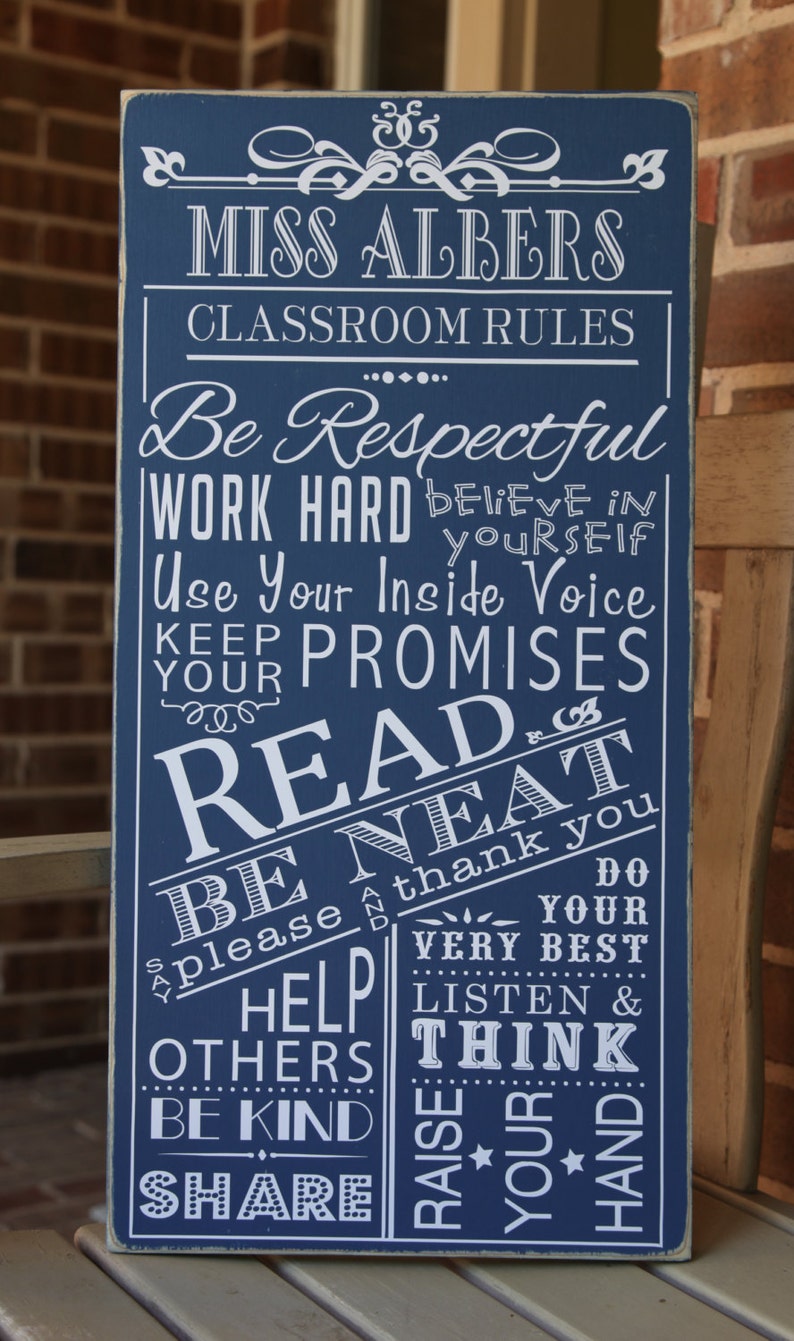 MISS ALBERS
CLASSROOM RULES
Be Respectful
WORK HARD
BELIEVE IN
YOURSELF
Use Your Inside Voice
KEEP
YOUR
PROMISES
READ
BE NEAT
SAY please AND thank you
HELP
OTHERS
BE KIND
SHARE
DO
YOUR
VERY BEST
LISTEN &
THINK
RAISE
YOUR
HAND